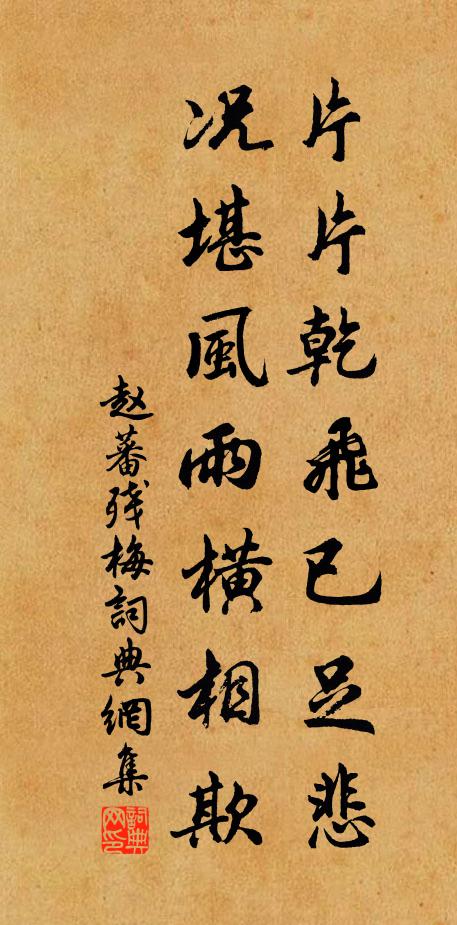 片片乾飛已足悲
况堪風雨橫相欺
赵蕃残梅詞典網集
詞典网印